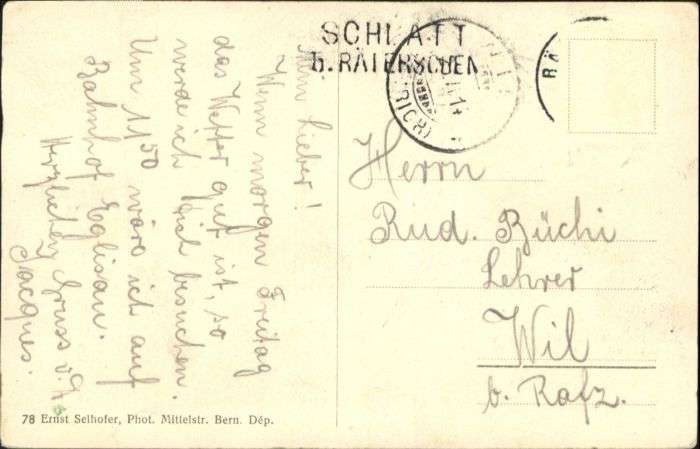 SCHLATT
b. RÄTERSCHEN
RÄ
Mein Lieber!
Wenn morgen Freitag
das Wetter gut ist, so
werde ich Dich besuchen.
Um 11 50 wäre ich auf
Bahnhof Eglisau.
Herzlichen Gruss v.
Jacques.
Herrn
Rud. Büchi
Lehrer
Wil
b. Rafz.
78 Ernst Selhofer, Phot. Mittelstr. Bern. Dép.